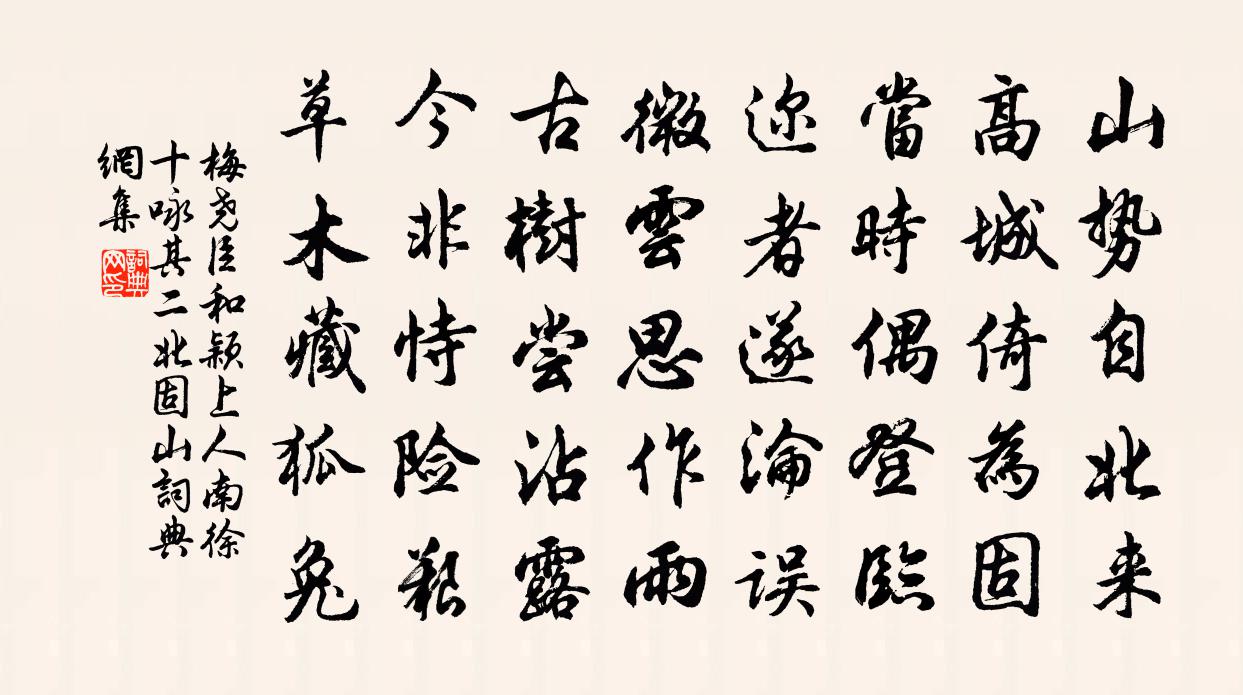 山势自北来
高城倚為固
當時偶登臨
迩者遂淪误
微雲思作雨
古樹尝沾露
今非恃险艱
草木藏狐兔
梅尧臣和颖上人南徐
十咏其二北固山詞典
網集
詞典网印